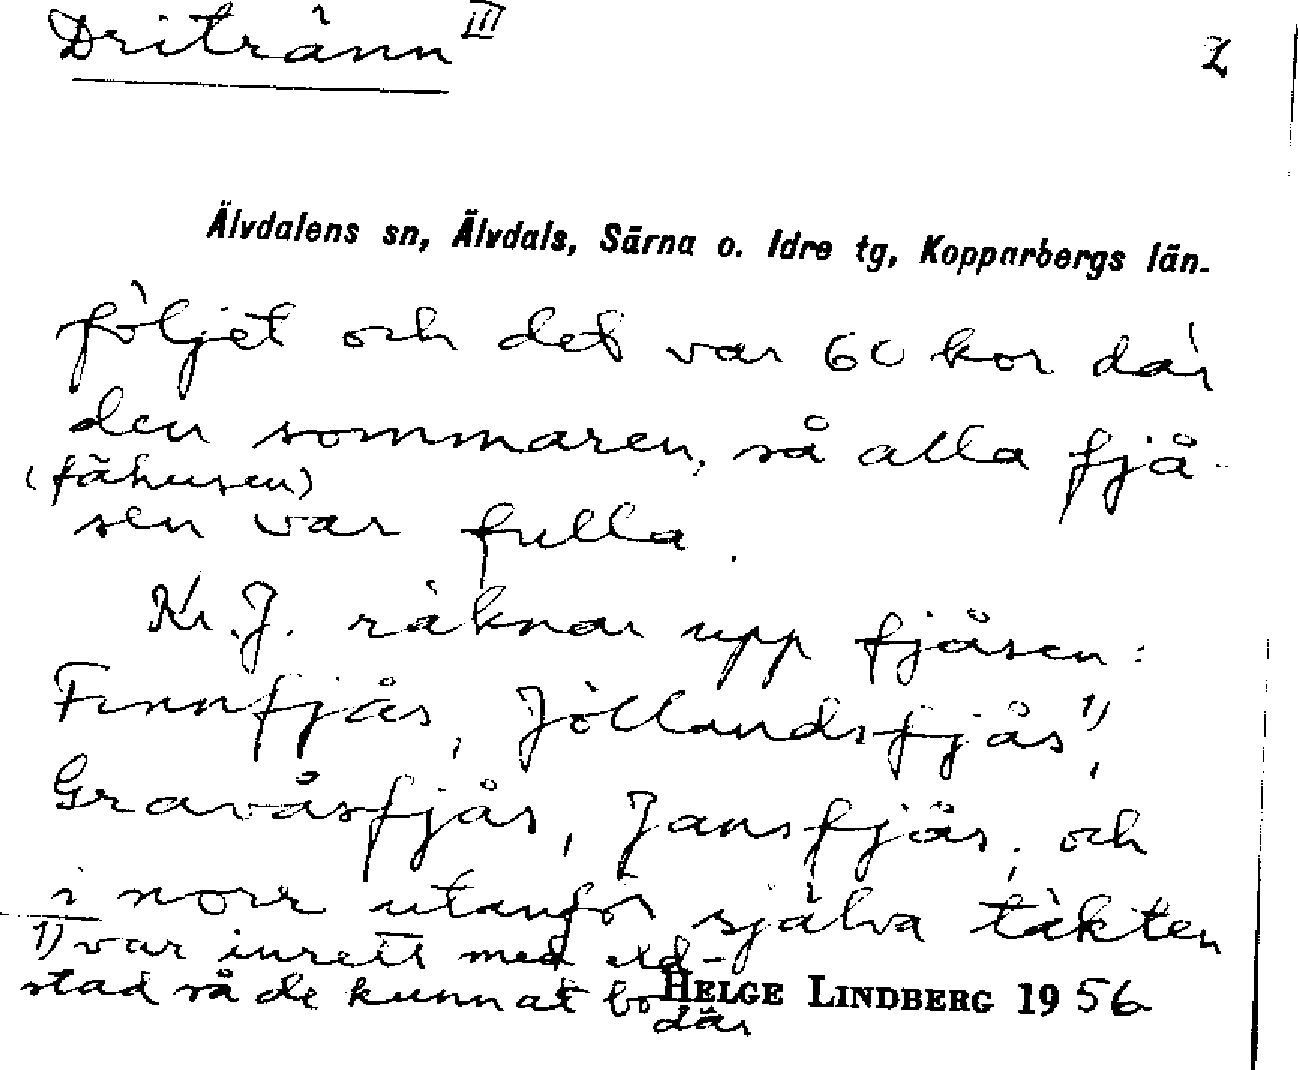 Dritränn III
2
Älvdalens sn, Älvdals, Särna o. Idre tg, Kopparbergs län.
följet och det var 60 kor där
den sommaren, så alla fjå-
(fähusen)
sen var fulla.
Kr. J. räknar upp fjåsen:
Finnfjås, Jöllandsfjås 1),
Gravåsfjås, Jansfjås, och
i norr utanför själva täkten
1) var inrett med eld-
stad så de kunnat bo
där
HELGE LINDBERG 1956